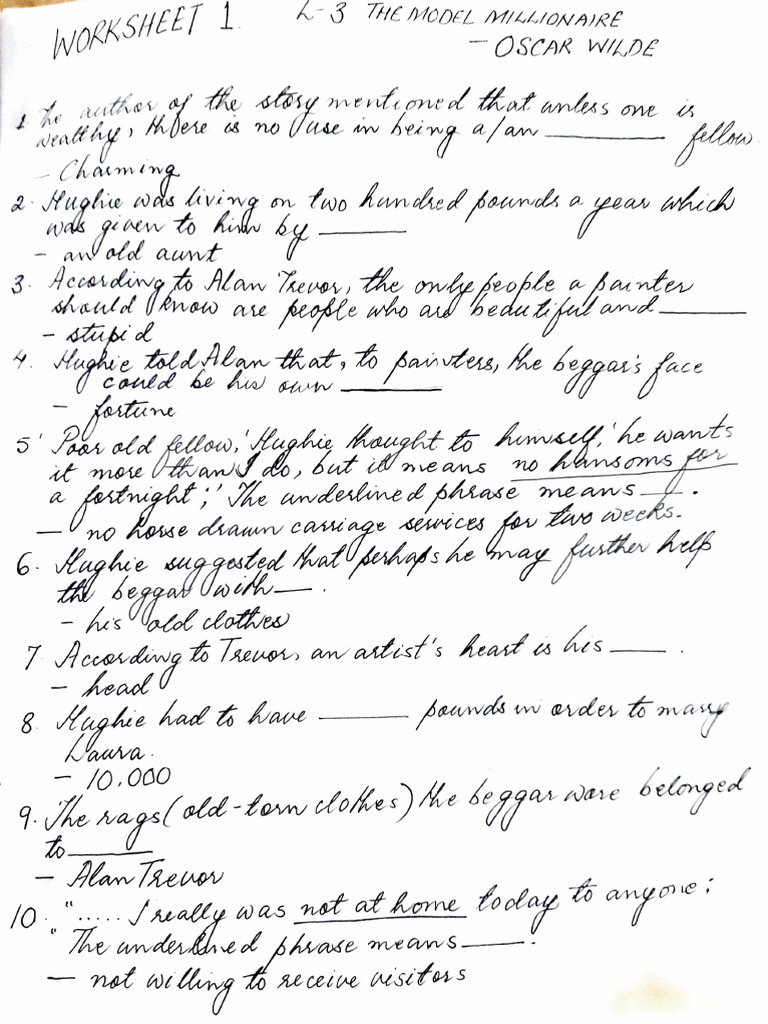 WORKSHEET 1. L-3 THE MODEL MILLIONAIRE
- OSCAR WILDE
1. The author of the story mentioned that unless one is
wealthy, there is no use in being a/an ________ fellow.
- Charming
2. Hughie was living on two hundred pounds a year which
was given to him by ________
- an old aunt
3. According to Alan Trevor, the only people a painter
should know are people who are beautiful and ________
- stupid
4. Hughie told Alan that, to painters, the beggar's face
could be his own ________
- fortune
5' Poor old fellow,' Hughie thought to himself,' he wants
it more than I do, but it means no hansoms for
a fortnight;' The underlined phrase means ____.
- no horse drawn carriage services for two weeks.
6. Hughie suggested that perhaps he may further help
the beggar with ____.
- his old clothes
7. According to Trevor, an artist's heart is his ____.
- head
8. Hughie had to have ________ pounds in order to marry
Laura.
- 10,000
9. The rags (old-torn clothes) the beggar wore belonged
to ________
- Alan Trevor
10. "..... I really was not at home today to anyone;
" The underlined phrase means ____.
- not willing to receive visitors